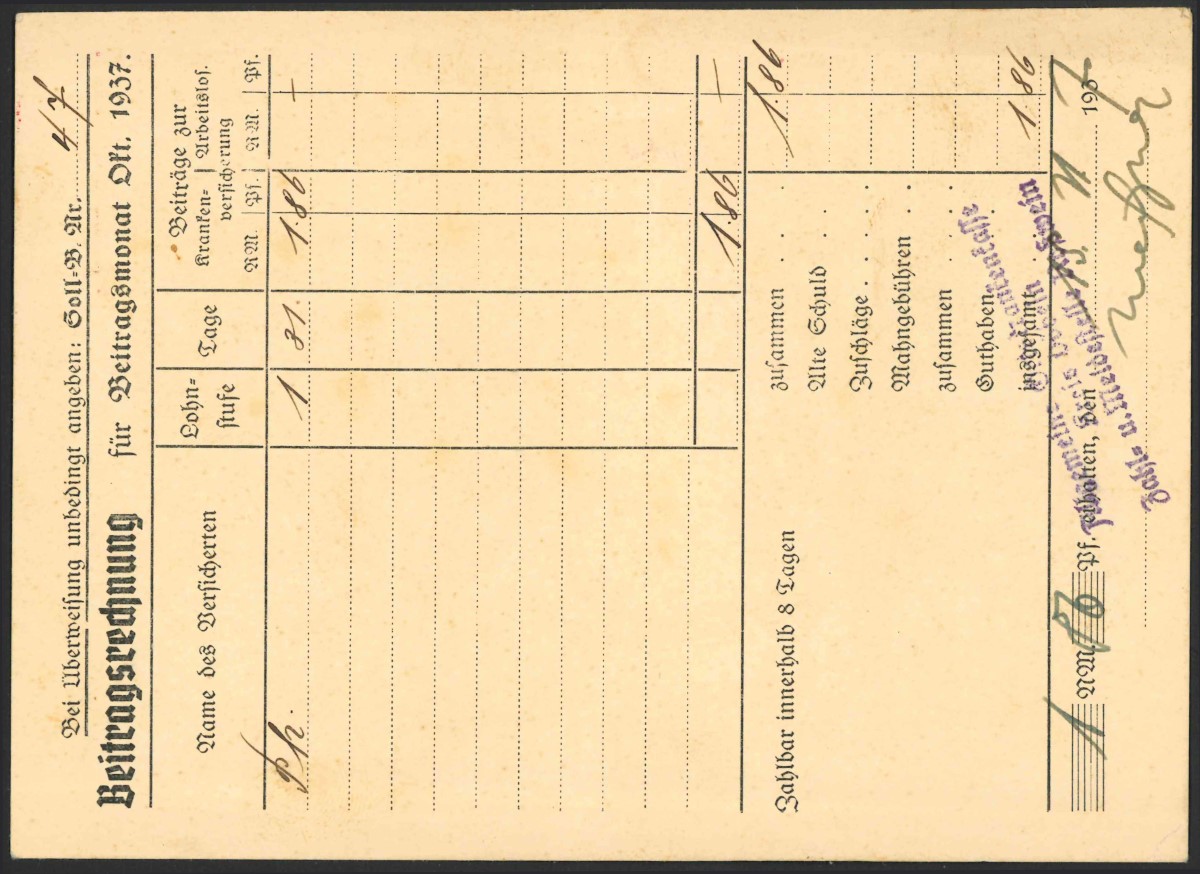 Bei Überweisung unbedingt angeben: Soll=B. Nr. 47
Beitragsrechnung für Beitragsmonat Okt. 1937.
Name des Versicherten
Lohn=
stufe
Tage
Beiträge zur
Kranken= Arbeitslos.
versicherung
RM. Pf. RM. Pf.
1 31. 1.86 —
1.86 —
Zahlbar innerhalb 8 Tagen
zusammen . . . 1.86
Alte Schuld . .
Zuschläge . . .
Mahngebühren .
zusammen . . .
Guthaben . . .
insgesamt . . 1.86
1 RM 86 Pf. erhalten, den 11 1937
Allgemeine Ortskrankenkasse
Zahl= u. Meldestelle